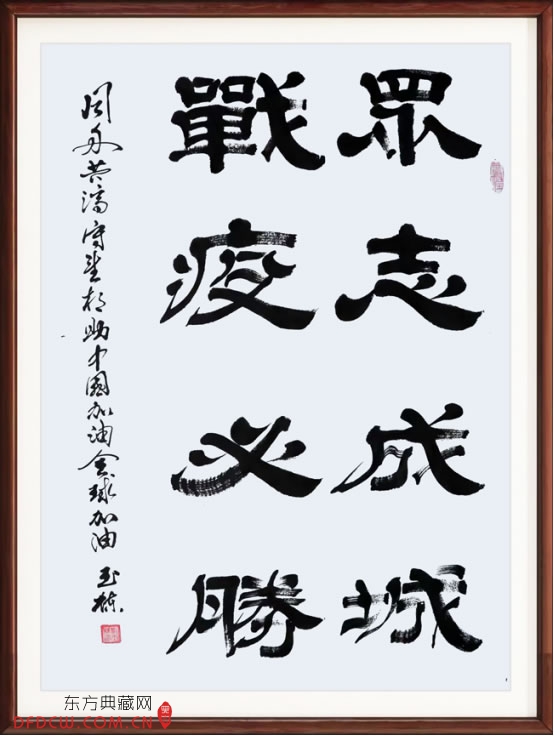 眾志成城
戰疫必勝
同舟共濟守望相助中國加油全球加油 玉棟
东方典藏网
DFDCW.COM.CN